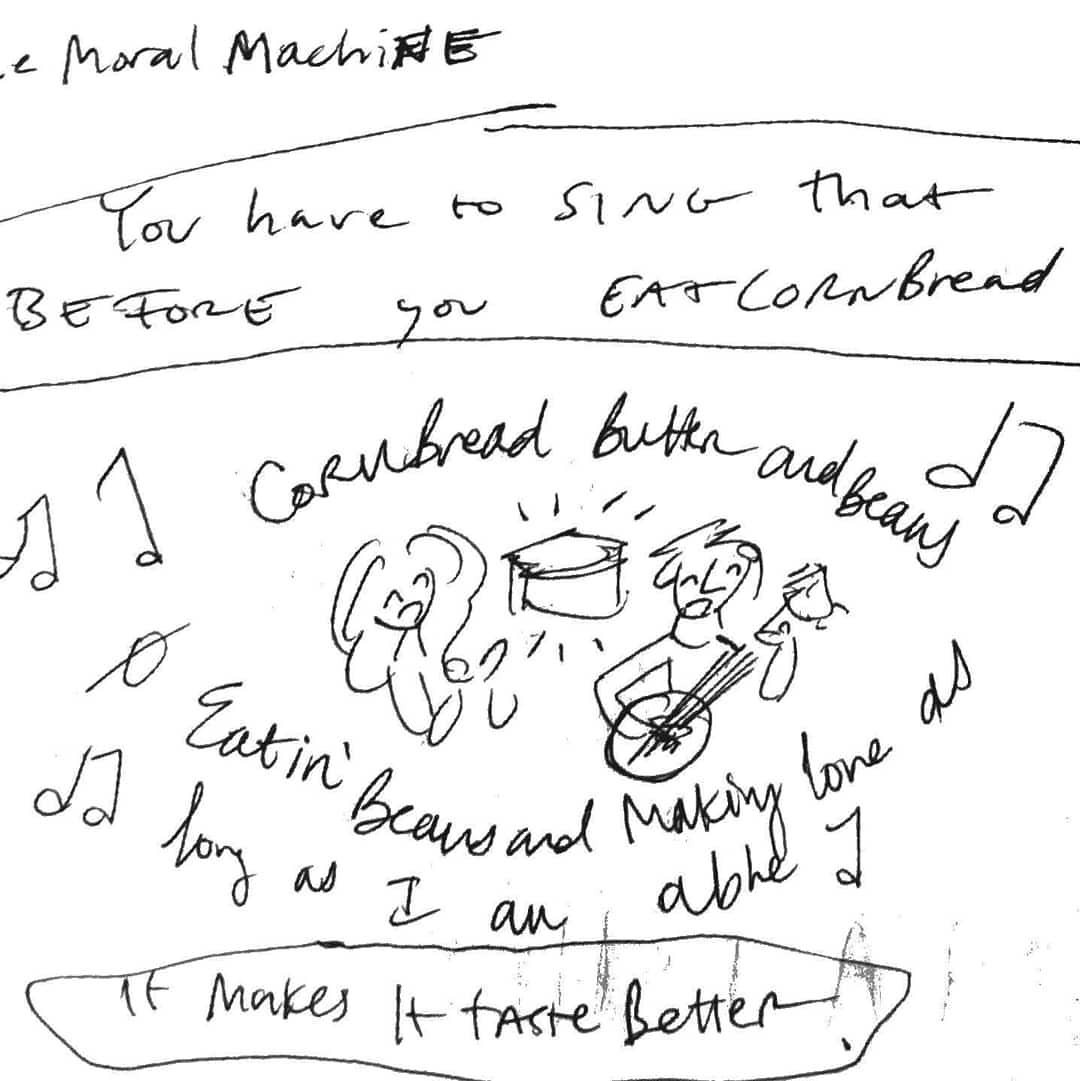 e Moral MachiNE
You have to SING that
BEFORE you EAT CORNBread
CORNBread butter and beans
Eatin' Beans and Making love as
long as I am able
It Makes It tASte Better.